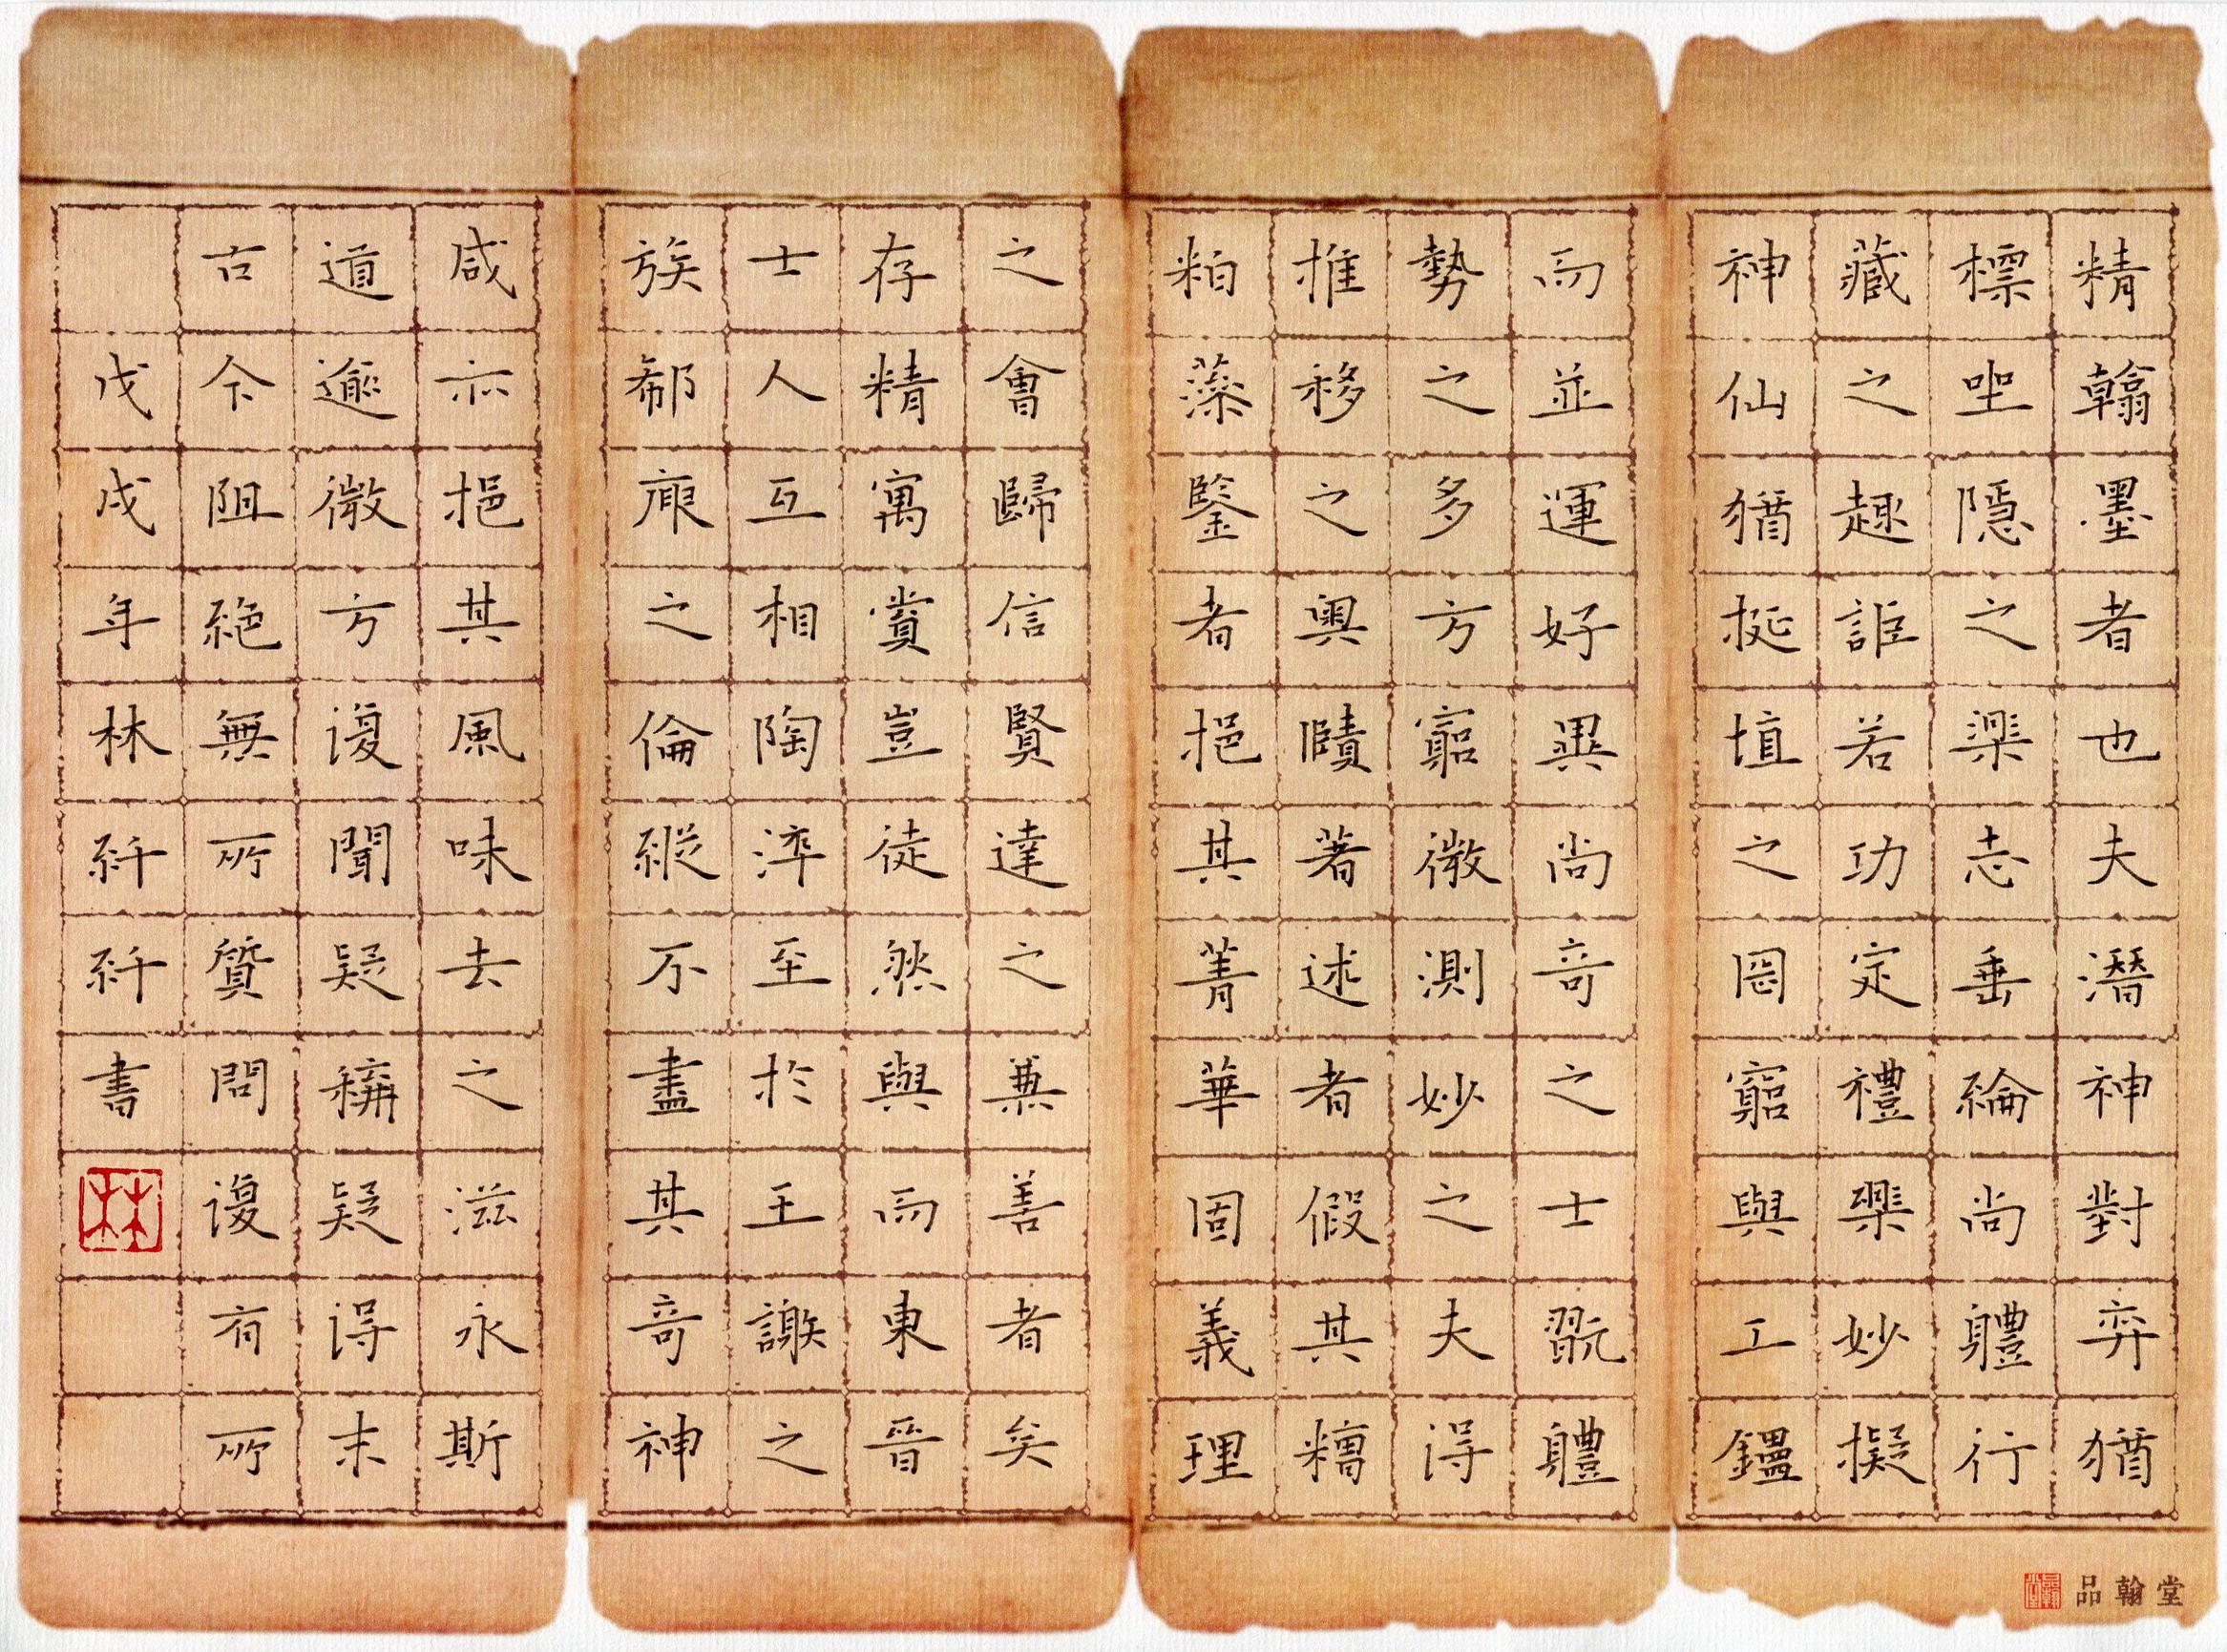 精翰墨者也夫潛神對弈猶
標坐隱之樂志垂綸尚體行
藏之趣詎若功定禮樂妙擬
神仙猶挻埴之罔窮與工鑪
而並運好異尚奇之士翫體
勢之多方窮微測妙之得夫
推移之奧賾著述者假其糟
粕藻鑒者挹其菁華固義理
之會歸信賢達之兼善者矣
存精寓賞豈徒然與而東晉
士人互相陶淬至於王謝之
族郗庾之倫縱不盡其奇神
咸亦挹其風味去之滋永斯
道逾微方復聞疑稱疑得末
古今阻絕無所質問復有所
戊戌年林紆紆書
林
品翰堂